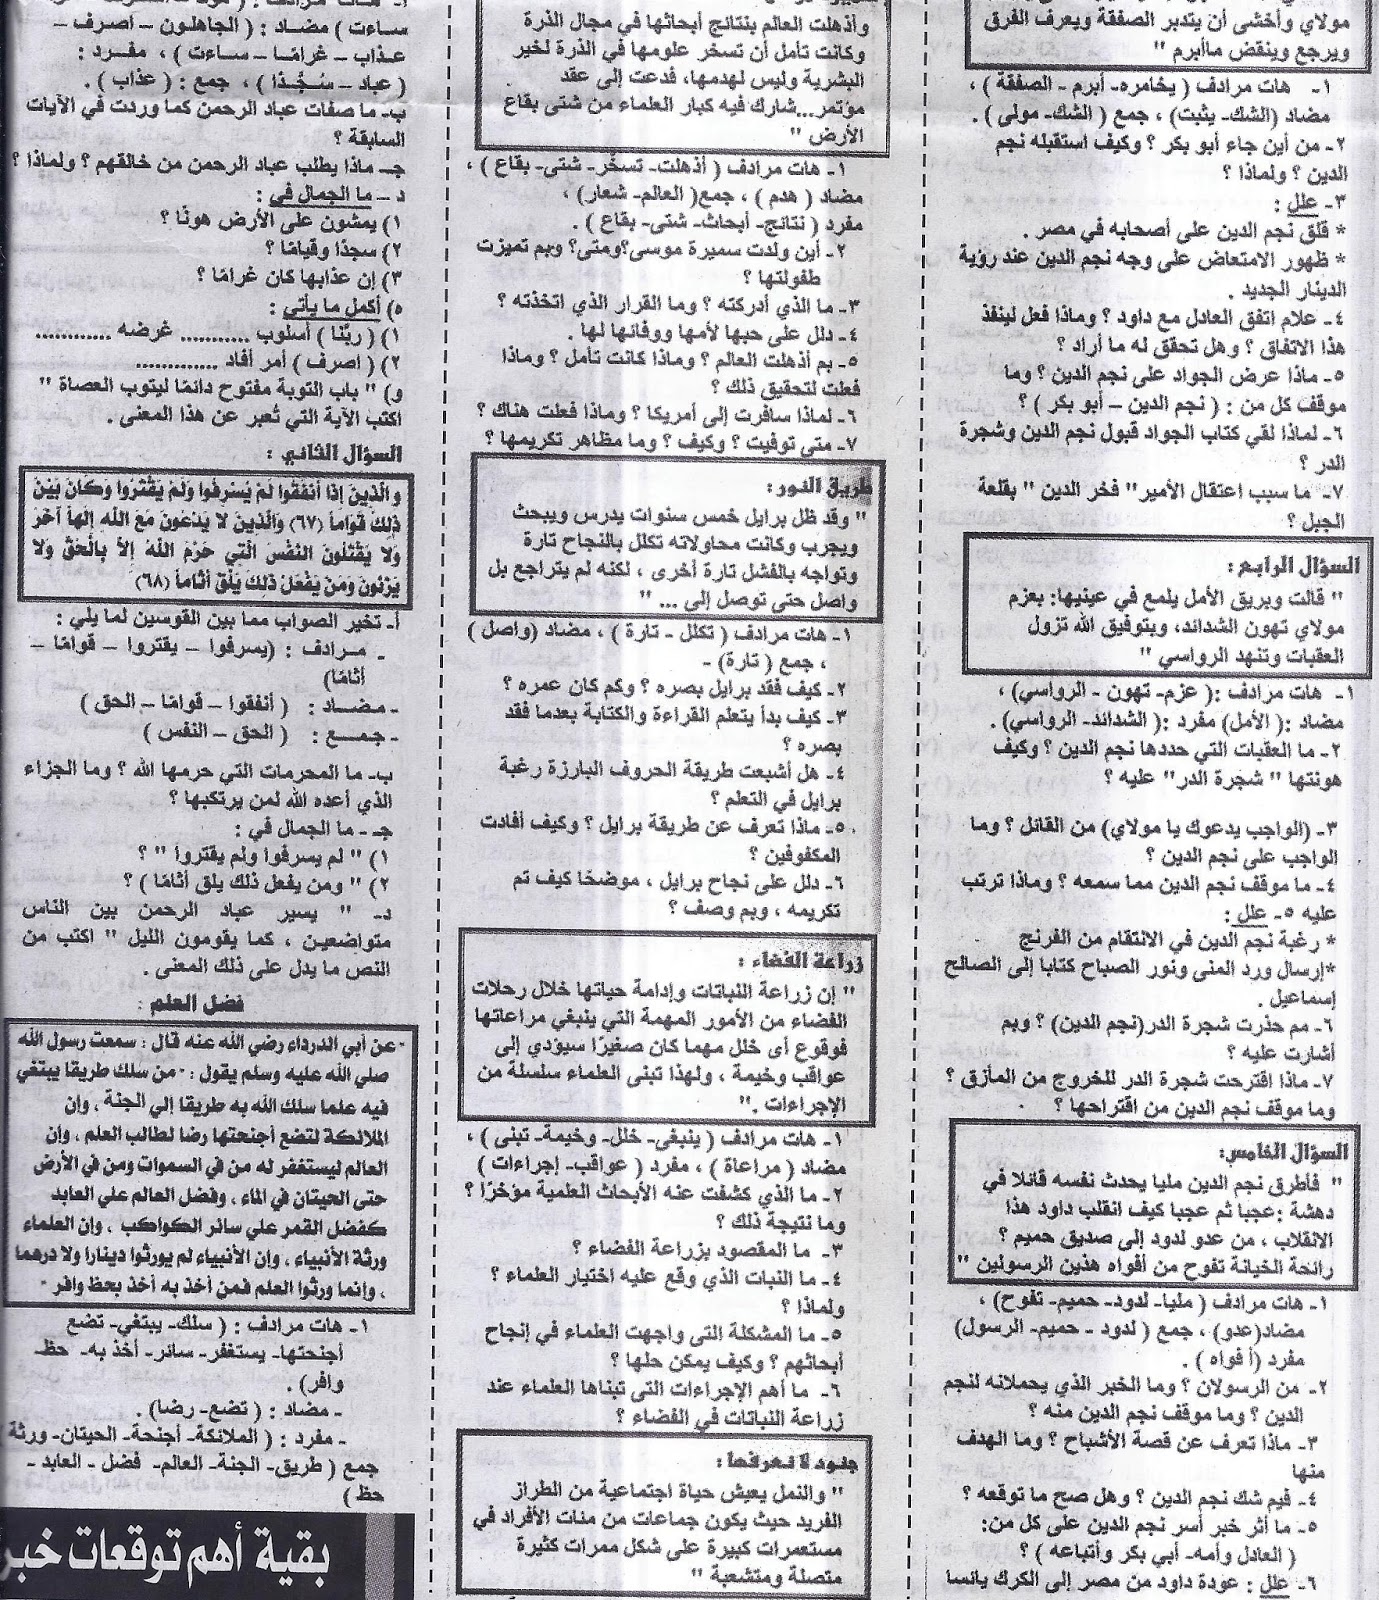 مولاي وأخشى أن يتدبر الصفقة ويعرف الفرق
ويرجع وينقض ماأبرم "
١- هات مرادف ( يخامره- أبرم - الصفقة ) ،
مضاد (الشك- يثبت) ، جمع ( الشك- مولى ) .
٢- من أين جاء أبو بكر ؟ وكيف استقبله نجم
الدين ؟ ولماذا ؟
٣- علل :
* قلق نجم الدين على أصحابه في مصر .
* ظهور الامتعاض على وجه نجم الدين عند رؤية
الدينار الجديد .
٤- علام اتفق العادل مع داود ؟ وماذا فعل لينفذ
هذا الاتفاق ؟ وهل تحقق له ما أراد ؟
٥- ماذا عرض الجواد على نجم الدين ؟ وما
موقف كل من : ( نجم الدين – أبو بكر ) ؟
٦- لماذا لقي كتاب الجواد قبول نجم الدين وشجرة
الدر ؟
٧- ما سبب اعتقال الأمير" فخر الدين " بقلعة
الجبل ؟
السؤال الرابع :
" قالت وبريق الأمل يلمع في عينيها: بعزم
مولاي تهون الشدائد، وبتوفيق الله تزول
العقبات وتنهد الرواسي "
١- هات مرادف :( عزم- تهون - الرواسي) ،
مضاد :( الأمل) مفرد :( الشدائد- الرواسي) .
٢- ما العقبات التي حددها نجم الدين ؟ وكيف
هونتها " شجرة الدر" عليه ؟
٣- (الواجب يدعوك يا مولاي) من القائل ؟ وما
الواجب على نجم الدين ؟
٤- ما موقف نجم الدين مما سمعه ؟ وماذا ترتب
عليه ٥- علل :
* رغبة نجم الدين في الانتقام من الفرنج
*إرسال ورد المنى ونور الصباح كتابا إلى الصالح
إسماعيل .
٦- مم حذرت شجرة الدر(نجم الدين) ؟ وبم
أشارت عليه ؟
٧- ماذا اقترحت شجرة الدر للخروج من المأزق ؟
وما موقف نجم الدين من اقتراحها ؟
السؤال الخامس:
" فأطرق نجم الدين مليا يحدث نفسه قائلا في
دهشة :عجبا ثم عجبا كيف انقلب داود هذا
الانقلاب ، من عدو لدود إلى صديق حميم ؟
رائحة الخيانة تفوح من أفواه هذين الرسولين "
١- هات مرادف ( مليا- لدود- حميم- تفوح) ،
مضاد(عدو) ، جمع ( لدود - حميم- الرسول)
مفرد (أفواه ) .
٢- من الرسولان ؟ وما الخبر الذي يحملانه لنجم
الدين ؟ وما موقف نجم الدين منه ؟
٣- ماذا تعرف عن قصة الأشباح ؟ وما الهدف
منها
٤- فيم شك نجم الدين ؟ وهل صح ما توقعه ؟
٥- ما أثر خبر أسر نجم الدين على كل من:
( العادل وأمه- أبي بكر وأتباعه ) ؟
٦- علل : عودة داود من مصر إلى الكرك يائسا
وأذهلت العالم بنتائج أبحاثها في مجال الذرة
وكانت تأمل أن تسخر علومها في الذرة لخير
البشرية وليس لهدمها، فدعت إلى عقد
مؤتمر...شارك فيه كبار العلماء من شتى بقاع
الأرض "
١- هات مرادف ( أذهلت- تسخَّر- شتى- بقاع ) ،
مضاد ( هدم ) ، جمع( العالم- شعار) ،
مفرد ( نتائج- أبحاث- شتى- بقاع ) .
٢- أين ولدت سميرة موسى؟ومتى؟ وبم تميزت
طفولتها ؟
٣- ما الذي أدركته ؟ وما القرار الذي اتخذته ؟
٤- دلل على حبها لأمها ووفائها لها .
٥- بم أذهلت العالم ؟ وماذا كانت تأمل ؟ وماذا
فعلت لتحقيق ذلك ؟
٦- لماذا سافرت إلى أمريكا ؟ وماذا فعلت هناك ؟
٧- متى توفيت ؟ وكيف ؟ وما مظاهر تكريمها ؟
طريق النور :
" وقد ظل برايل خمس سنوات يدرس ويبحث
ويجرب وكانت محاولاته تكلل بالنجاح تارة
وتواجه بالفشل تارة أخرى ، لكنه لم يتراجع بل
واصل حتى توصل إلى ... "
١- هات مرادف ( تكلل - تارة ) ، مضاد (واصل )
، جمع ( تارة) -
٢- كيف فقد برايل بصره ؟ وكم كان عمره ؟
٣- كيف بدأ يتعلم القراءة والكتابة بعدما فقد
بصره ؟
٤- هل أشبعت طريقة الحروف البارزة رغبة
برايل في التعلم ؟
٥- ماذا تعرف عن طريقة برايل ؟ وكيف أفادت
المكفوفين ؟
٦- دلل على نجاح برايل ، موضحًا كيف تم
تكريمه ، وبم وصف ؟
زراعة الفضاء :
" إن زراعة النباتات وإدامة حياتها خلال رحلات
الفضاء من الأمور المهمة التي ينبغي مراعاتها
فوقوع أى خلل مهما كان صغيرًا سيؤدي إلى
عواقب وخيمة ، ولهذا تبنى العلماء سلسلة من
الإجراءات ."
١- هات مرادف ( ينبغي- خلل- وخيمة- تبنى ) ،
مضاد ( مراعاة ) ، مفرد ( عواقب- إجراءات )
٢- ما الذي كشفت عنه الأبحاث العلمية مؤخرًا ؟
وما نتيجة ذلك ؟
٣- ما المقصود بزراعة الفضاء ؟
٤- ما النبات الذي وقع عليه اختيار العلماء ؟
ولماذا ؟
٥- ما المشكلة التى واجهت العلماء في إنجاح
أبحاثهم ؟ وكيف يمكن حلها ؟
٦- ما أهم الإجراءات التى تبناها العلماء عند
زراعة النباتات في الفضاء ؟
جنود لا نعرفها :
" والنمل يعيش حياة اجتماعية من الطراز
الفريد حيث يكون جماعات من مئات الأفراد في
مستعمرات كبيرة على شكل ممرات كثيرة
متصلة ومتشعبة "
ساءت ) مضاد : ( الجاهلون – أصرف –
عذاب – غرامًا – ساءت ) ، مفرد :
( عباد – سُجَّدًا ) ، جمع : ( عذاب ) .
ب- ما صفات عباد الرحمن كما وردت في الآيات
السابقة ؟
جـ- ماذا يطلب عباد الرحمن من خالقهم ؟ ولماذا ؟
د – ما الجمال في :
١) يمشون على الأرض هونًا ؟
٢) سجدًا وقيامًا ؟
٣) إن عذابها كان غرامًا ؟
٥) أكمل ما يأتي :
١) ( ربَّنا ) أسلوب ........... غرضه ............
٢) ( اصرف ) أمر أفاد .............
و) " باب التوبة مفتوح دائمًا ليتوب العصاة "
اكتب الآية التي تُعبر عن هذا المعنى .
السؤال الثاني :
والَّذِينَ إذَا أنفَقُوا لَمْ يُسْرِفُوا وَلَمْ يَقْتُرُوا وكَانَ بَيْنَ
ذَلِكَ قَوَاماً (٦٧) والَّذِينَ لا يَدْعُونَ مَعَ اللَّهِ إلَهاً آخَرَ
ولا يَقْتُلُونَ النَّفْسَ الَتِي حَرَّمَ اللَّهُ إلاَّ بِالْحَقِّ ولا
يَزْنُونَ ومَنْ يَفْعَلْ ذَلِكَ يَلْقَ أثَاماً (٦٨)
أ- تخير الصواب مما بين القوسين لما يلي :
- مرادف : (يسرفوا – يقتروا – قوامًا –
أثامًا)
- مضاد : ( أنفقوا – قوامًا – الحق )
- جمع : ( الحق – النفس )
ب- ما المحرمات التي حرمها الله ؟ وما الجزاء
الذي أعده الله لمن يرتكبها ؟
جـ - ما الجمال في :
١) " لم يسرفوا ولم يقتروا " ؟
٢) " ومن يفعل ذلك يلق أثامًا ) ؟
د- " يسير عباد الرحمن بين الناس
متواضعين ، كما يقومون الليل " اكتب من
النص ما يدل على ذلك المعنى .
فضل العلم :
"عن أبي الدرداء رضي الله عنه قال : سمعت رسول الله
صلي الله عليه وسلم يقول : " من سلك طريقا يبتغي
فيه علما سلك الله به طريقا إلي الجنة ، وإن
الملائكة لتضع أجنحتها رضا لطالب العلم ، وإن
العالم ليستغفر له من في السموات ومن في الأرض
حتى الحيتان في الماء ، وفضل العالم علي العابد
كفضل القمر علي سائر الكواكب ، وإن العلماء
ورثة الأنبياء ، وإن الأنبياء لم يورثوا دينارا ولا درهما
، وإنما ورثوا العلم فمن أخذ به أخذ بحظ وافر "
١- هات مرادف : ( سلك- يبتغي- تضع
أجنحتها- يستغفر- سائر- أخذ به- حظ
وافر) .
- مضاد : ( تضع- رضا) .
- مفرد : ( الملائكة- أجنحة- الحيتان- ورثة
جمع ( طريق- الجنة- العالم- فضل - العابد -
حظ )
بقية أهم توقعات خبر